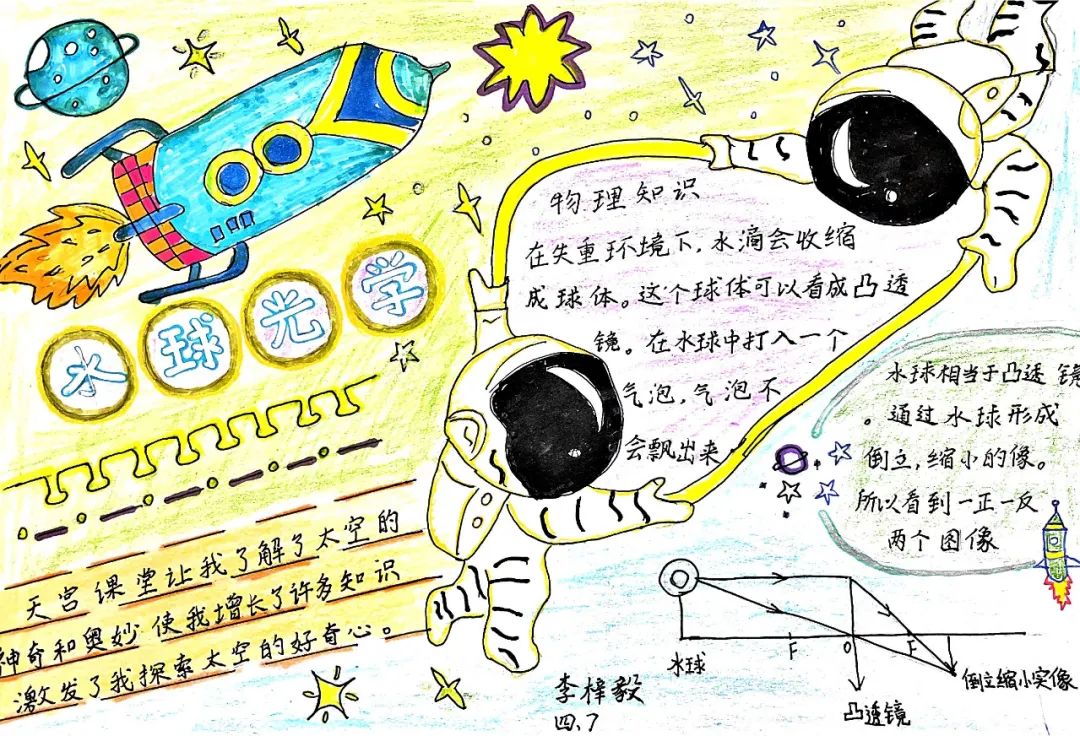 水球光学
物理知识
在失重环境下，水滴会收缩
成球体。这个球体可以看成凸透
镜。在水球中打入一个
气泡，气泡不
会飘出来.
水球相当于凸透镜
。通过水球形成
倒立，缩小的像。
所以看到一正一反
两个图像
天宫课堂让我了解了太空的
神奇和奥妙使我增长了许多知识
激发了我探索太空的好奇心。
水球
F
O
F
倒立缩小实像
凸透镜
李梓毅
四、7